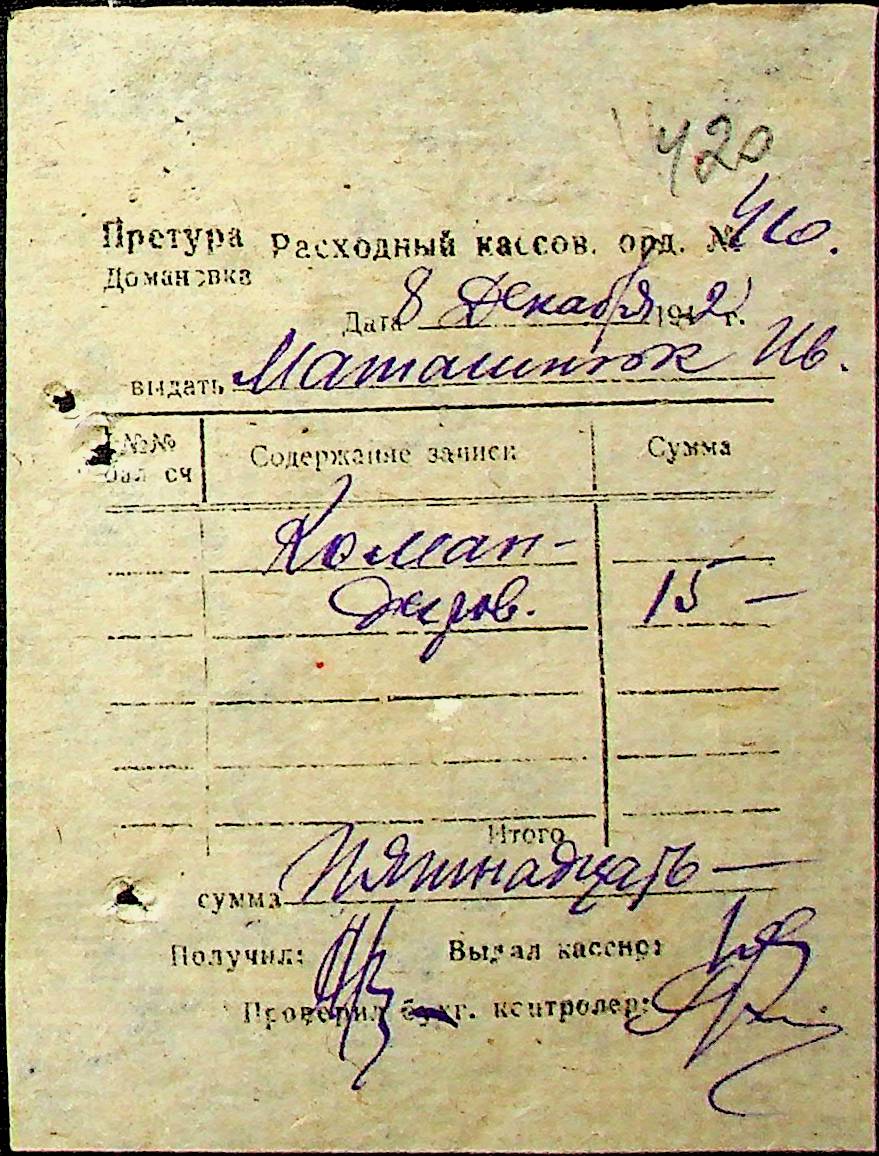 420
Претура Расходный кассов. орд. № 410.
Домановка
Дата 8 Декабря 1942 г.
выдать Маташнюк Ив.
№№ Содержание записи Сумма
бал сч
Коман-
диров. 15 —
Итого
сумма Пятнадцать —
Получил: Выдал кассир:
Проверил бухг. контролер: